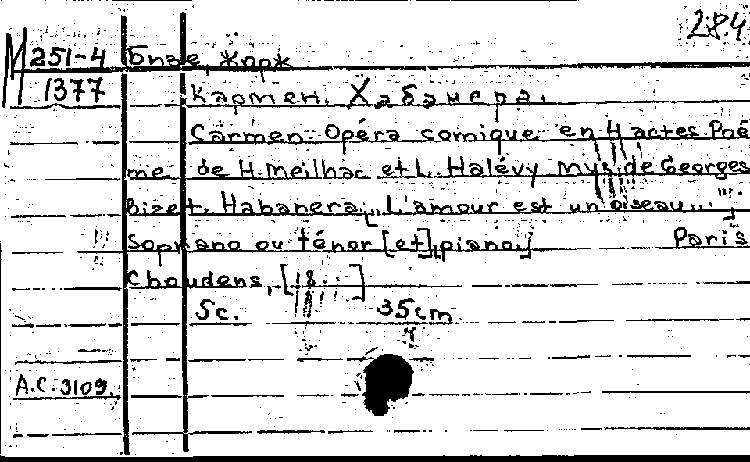 284
М 251-4 Бизе, Жорж
1377 Кармен. Хабанера.
Carmen. Opéra comique en 4 actes Poè
me de H. Meilhac et L. Halévy Mus. de Georges
Bizet. Habanera „L'amour est un oiseau..."
Soprano ou ténor [et] piano] Paris
Choudens, [18 ]
5c. 35cm
A.C. 3109.